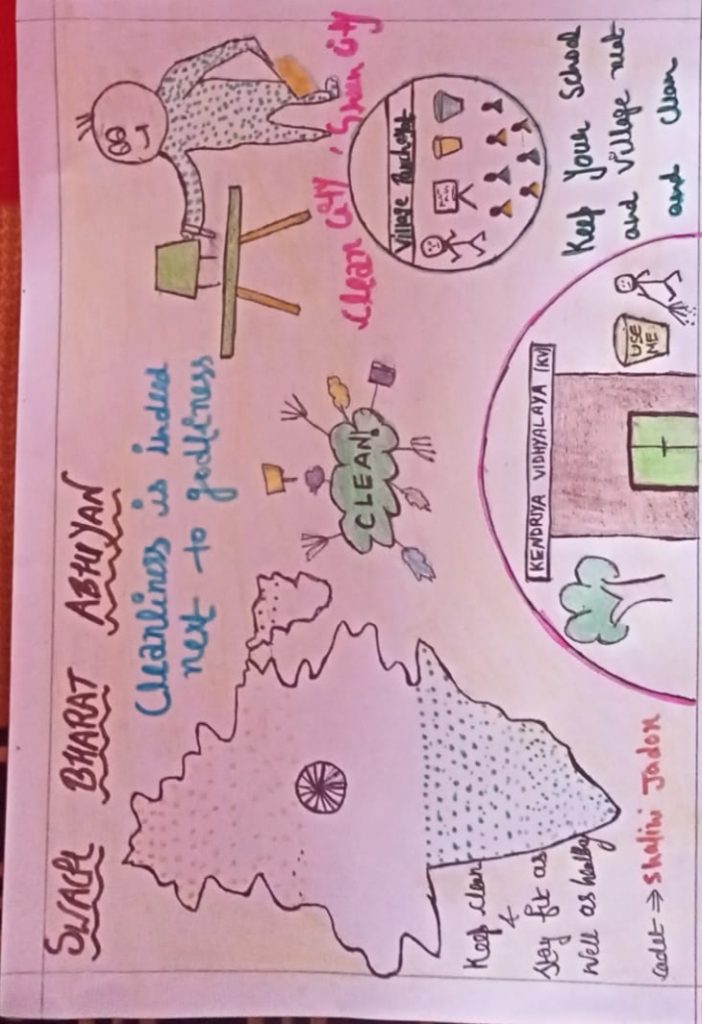 SWACH BHARAT ABHIYAN
Cleanliness is indeed
next to godliness
Clean City, Green City
Village Panchayat
CLEAN!
Keep Your School
and Village neat
and clean
KENDRIYA VIDHYALAYA (KV)
USE
ME
Keep clean
&
stay fit as
well as healthy
cadet ⇒ Shalini Jadon